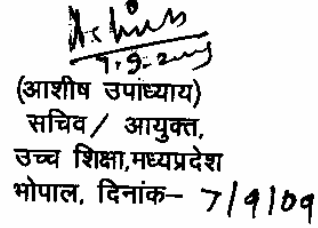 7.9.2009
(आशीष उपाध्याय)
सचिव/ आयुक्त,
उच्च शिक्षा,मध्यप्रदेश
भोपाल, दिनांक– 7/9/09